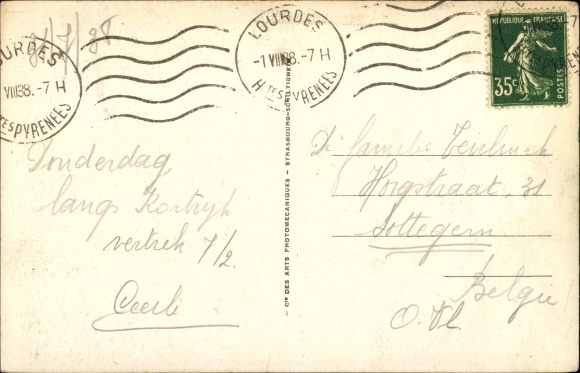 31/7/38
LOURDES
VIII38.-7H
HTES PYRENEES
LOURDES
-1 VIII38.-7H
HTES PYRENEES
REPUBLIQUE FRANÇAISE
35c
POSTES
Donderdag
langs Kortryk
vertrek 7 1/2.
Cie DES ARTS PHOTOMECANIQUES - STRASBOURG-SCHILTIGHEIM
De familie
Hoogstraat, 31
Sottegem
Belgie
O. Vl